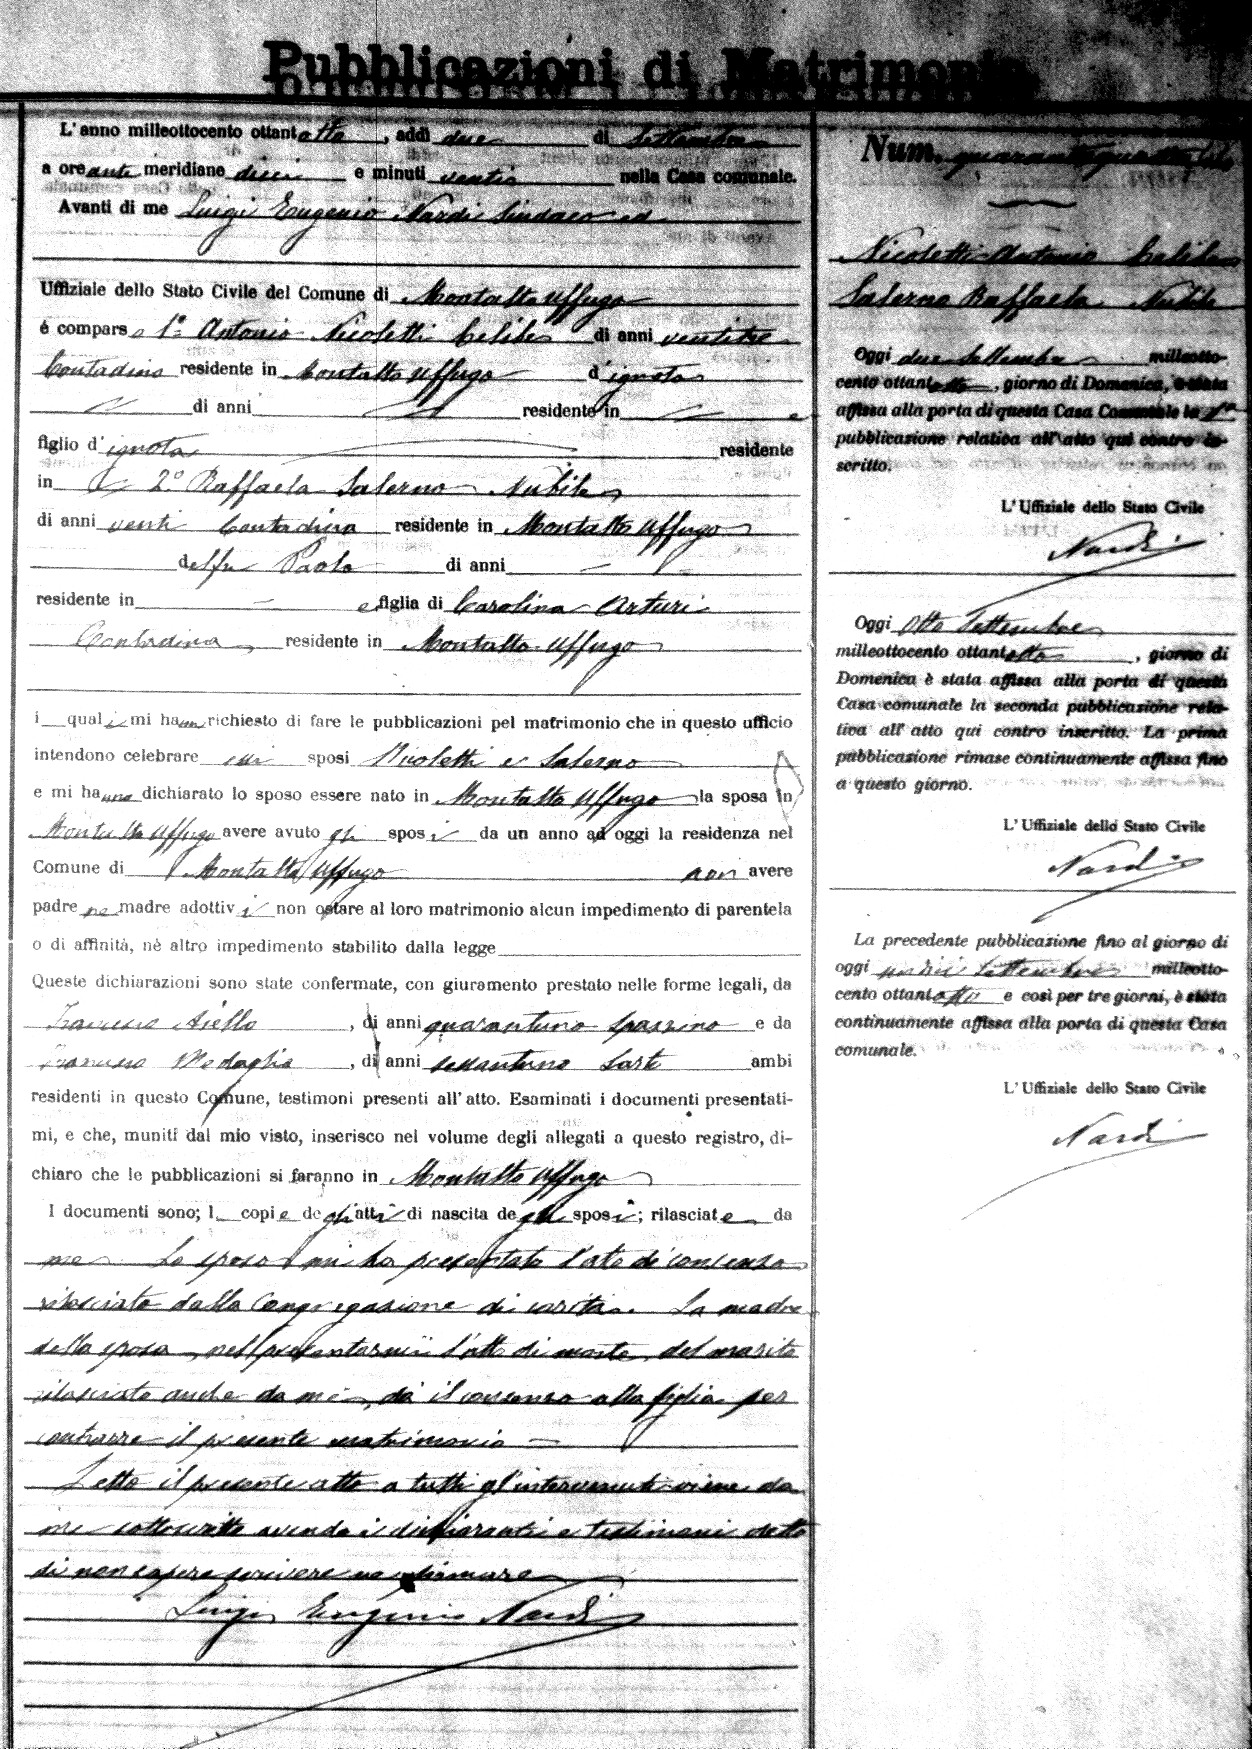 Pubblicazioni di Matrimonio
L'anno milleottocento ottantotto, addì due di Settembre
a ore ante meridiane dieci e minuti venti nella Casa comunale.
Avanti di me Luigi Eugenio Nardi Sindaco ed
Uffiziale dello Stato Civile del Comune di Montalto Uffugo
è comparso 1º Antonio Nicoletti Celibe di anni ventitre
Contadino residente in Montalto Uffugo d'ignoto
di anni residente in e
figlio d'ignota residente
in 2º Raffaela Salerno Nubile
di anni venti Contadina residente in Montalto Uffugo
del fu Paolo di anni
residente in e figlia di Carolina Arturi
Contadina residente in Montalto Uffugo
i quali mi hanno richiesto di fare le pubblicazioni pel matrimonio che in questo ufficio
intendono celebrare sposi Nicoletti e Salerno
e mi hanno dichiarato lo sposo essere nato in Montalto Uffugo la sposa in
Montalto Uffugo avere avuto gli sposi da un anno ad oggi la residenza nel
Comune di Montalto Uffugo non avere
padre ne madre adottivi non ostare al loro matrimonio alcun impedimento di parentela
o di affinità, nè altro impedimento stabilito dalla legge
Queste dichiarazioni sono state confermate, con giuramento prestato nelle forme legali, da
Francesco Aiello, di anni quarantuno spazzino e da
Francesco Medaglia, di anni sessantuno Sarto ambi
residenti in questo Comune, testimoni presenti all'atto. Esaminati i documenti presentati-
mi, e che, muniti dal mio visto, inserisco nel volume degli allegati a questo registro, di-
chiaro che le pubblicazioni si faranno in Montalto Uffugo
I documenti sono; l copie degli atti di nascita degli sposi; rilasciate da
me Lo sposo mi ha presentato l'atto di consenso
rilasciato dalla Congregazione di carità. La madre
della sposa, nel presentarmi l'atto di morte del marito
rilasciato anche da me, dà il consenso alla figlia per
contrarre il presente matrimonio
Letto il presente atto a tutti gl'intervenuti viene da
me sottoscritto avendo i dichiaranti e testimoni detto
di non sapere scrivere ne firmare
Luigi Eugenio Nardi
Num. quarantaquattro
Nicoletti Antonio Celibe
Salerno Raffaela Nubile
Oggi due Settembre milleotto-
cento ottantotto, giorno di Domenica, è stata
affissa alla porta di questa Casa Comunale la 1ª
pubblicazione relativa all'atto qui contro in-
scritto.
L'Uffiziale dello Stato Civile
Nardi
Oggi otto Settembre
milleottocento ottantotto, giorno di
Domenica è stata affissa alla porta di questa
Casa comunale la seconda pubblicazione rela-
tiva all'atto qui contro inscritto. La prima
pubblicazione rimase continuamente affissa fino
a questo giorno.
L'Uffiziale dello Stato Civile
Nardi
La precedente pubblicazione fino al giorno di
oggi undici Settembre milleotto-
cento ottantotto e così per tre giorni, è stata
continuamente affissa alla porta di questa Casa
comunale.
L'Uffiziale dello Stato Civile
Nardi